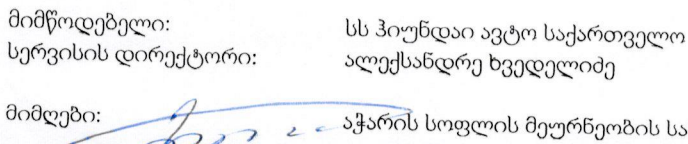 მიმწოდებელი: სს ჰიუნდაი ავტო საქართველო
სერვისის დირექტორი: ალექსანდრე ხვედელიძე
მიმღები: აჭარის სოფლის მეურნეობის სა